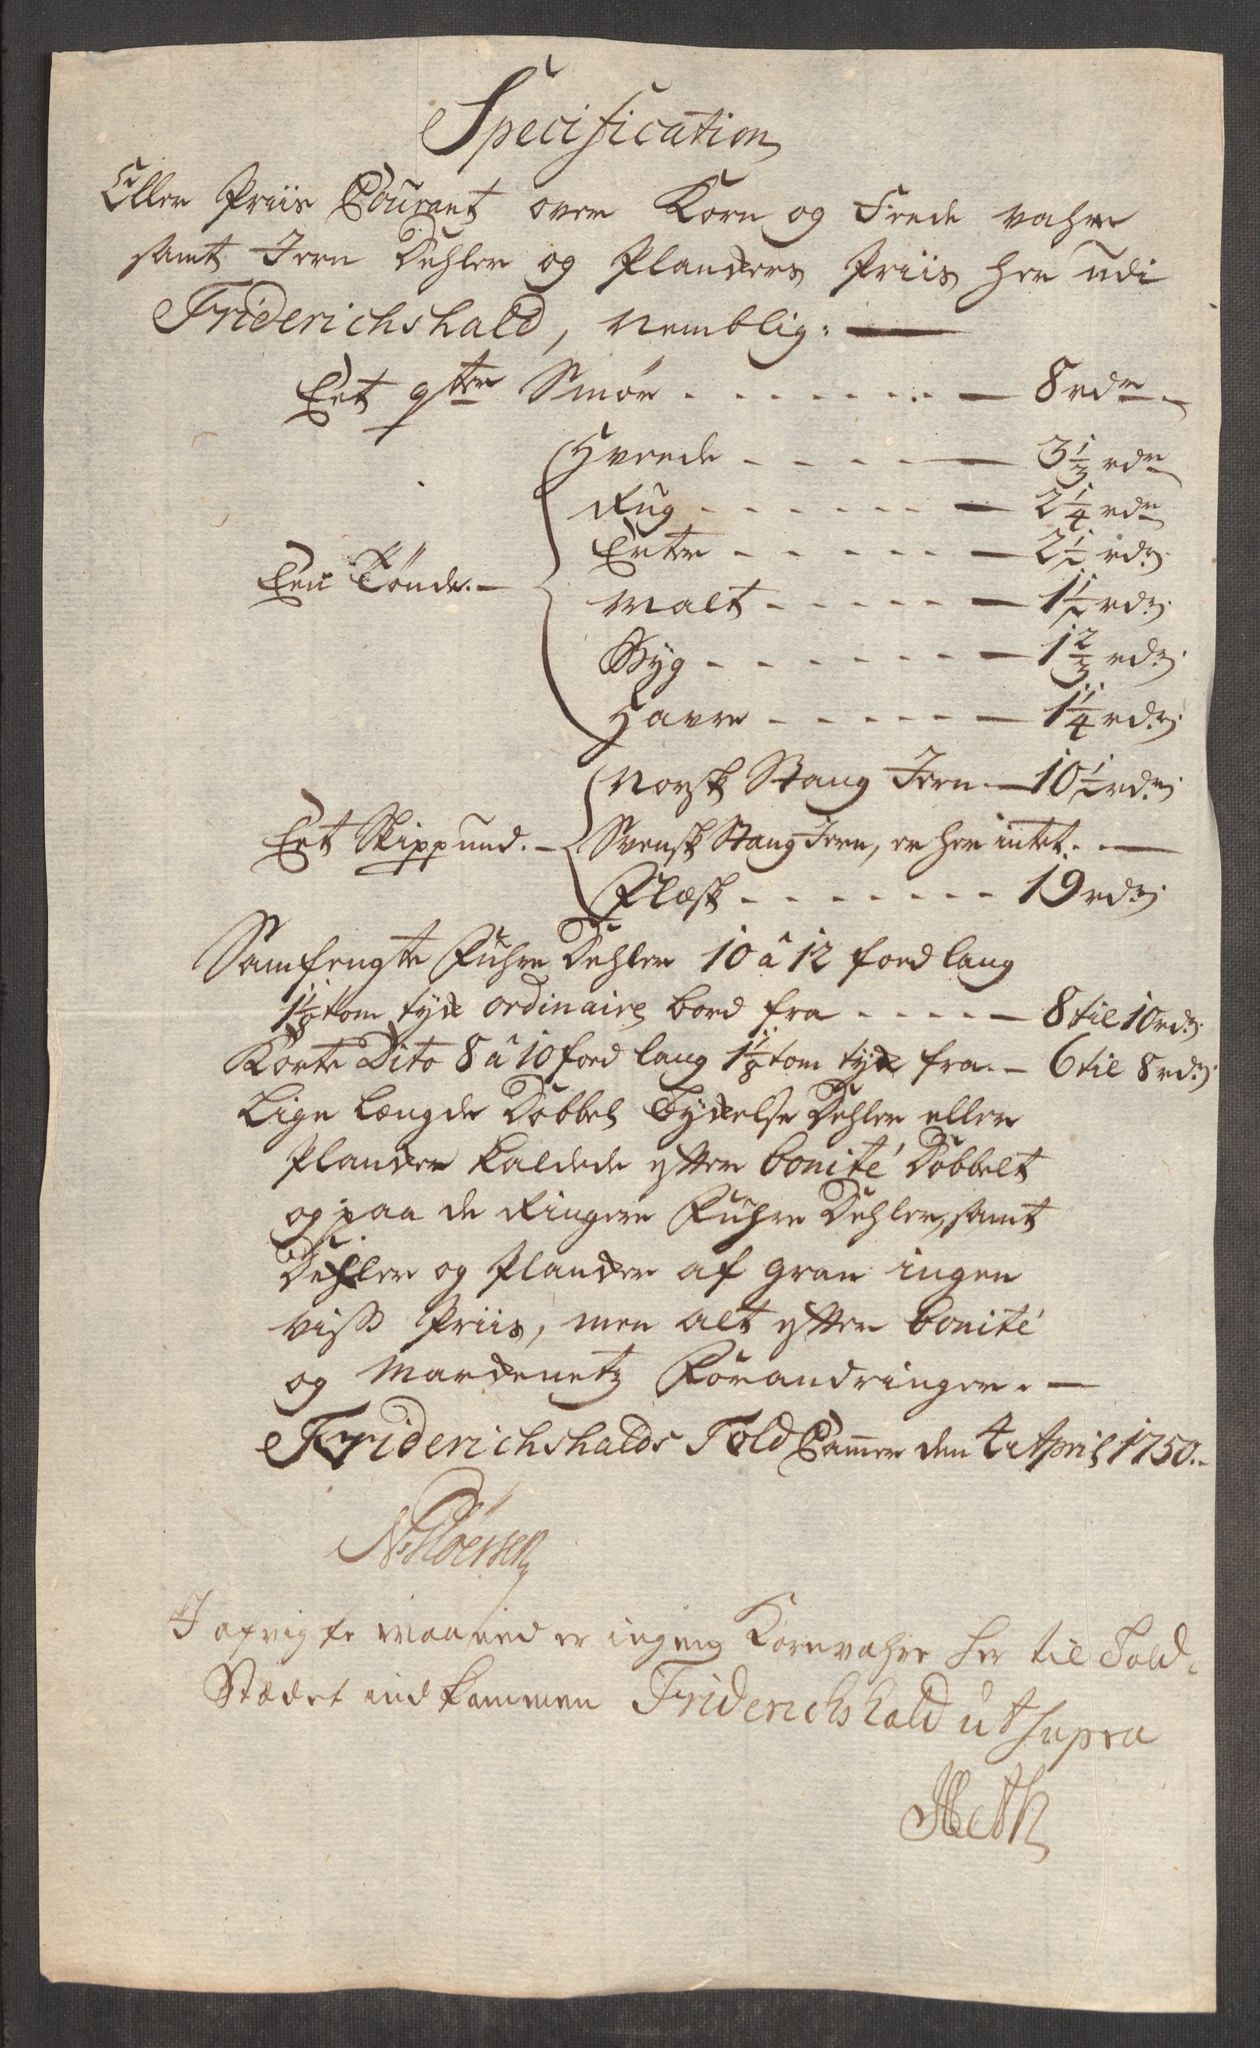 Specification
Eller Priis Courant over Korn og Fede vahre
samt Jern Dehler og Planckers Priis her udi
Friderichshald, Nemblig:
Eet qter Smør - - - - - - - 8 rdr
Hvede - - - - - 3 1/3 rdr
Rug - - - - - - 2 1/4 rdr
Erter - - - - - 2 1/2 rdr
Een Tønde. Malt - - - - - 1 1/2 rdr
Byg - - - - - - 1 2/3 rdr
Havre - - - - - 1 1/4 rdr
Norsk Stang Jern - 10 1/2 rdr
Eet Skippund. Svensk Stang Jern, er her intet.
Flæsk - - - - - - - 19 rdr
Samfengte Fuhre Dehler 10 â 12 foed lang
1 1/8 tom tyck ordinaire bord fra - - - - - 8 til 10 rdr
Korte Dito 8 â 10 foed lang 1 1/8 tom tyck fra - 6 til 8 rdr
Lige længde Dobbel Tyckelse Dehler eller
Plancker kaldede efter bonité Dobbelt
og paa de Ringere Fuhre Dehler, samt
Dehler og Plancker af gran ingen
viss Priis, men alt efter bonité
og Marckenetz Forandringer.
Friderichshalds Told Cammer den 4 April 1750.
I afvigte Maaned er ingen Kornvahre her til Told-
Stædet indkommen Friderichshald ut supra